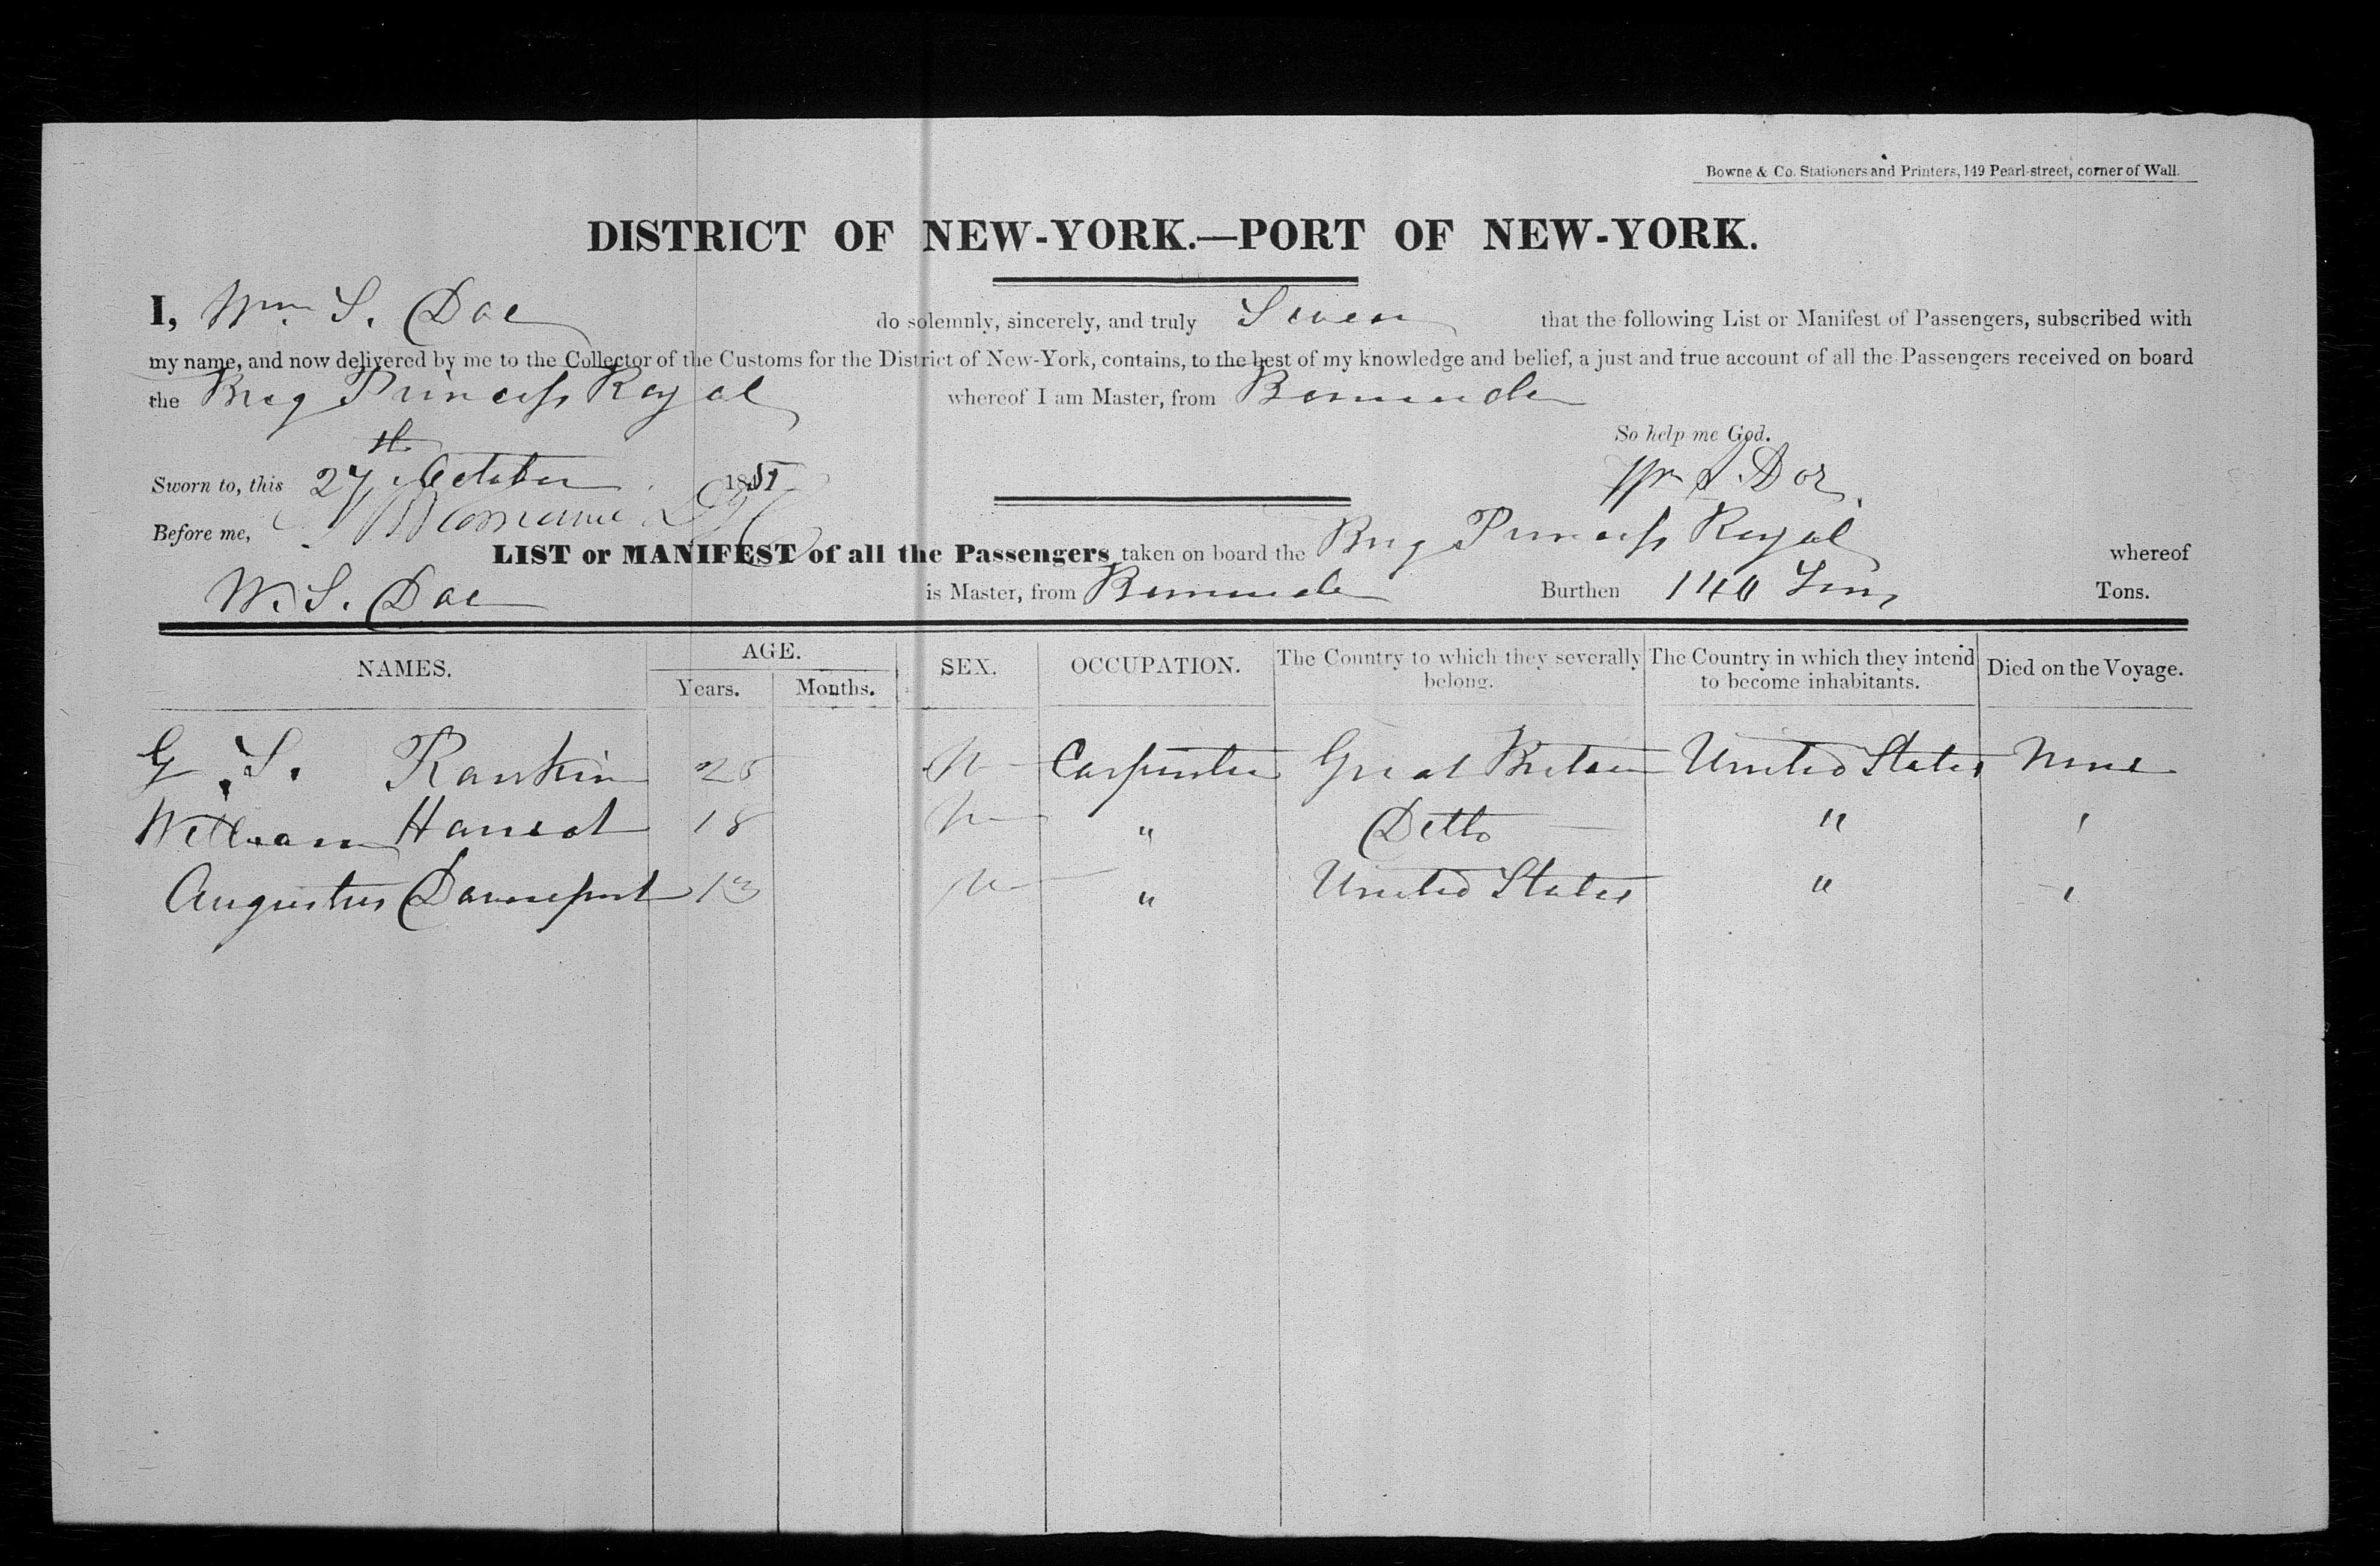 Bowne & Co. Stationers and Printers, 149 Pearl-street, corner of Wall.
DISTRICT OF NEW-YORK.—PORT OF NEW-YORK.
I, Wm. S. Doe do solemnly, sincerely, and truly Swear that the following List or Manifest of Passengers, subscribed with
my name, and now delivered by me to the Collector of the Customs for the District of New-York, contains, to the best of my knowledge and belief, a just and true account of all the Passengers received on board
the Brig Princess Royal whereof I am Master, from Bermuda
So help me God.
Sworn to, this 27th October 1851 Wm S. Doe
Before me,
LIST or MANIFEST of all the Passengers taken on board the Brig Princess Royal whereof
W. S. Doe is Master, from Bermuda Burthen 140 Tons Tons.
NAMES. AGE. SEX. OCCUPATION. The Country to which they severally belong. The Country in which they intend to become inhabitants. Died on the Voyage.
Years. Months.
G. S. Rankin 25 M Carpenter Great Britain United States None
William 18 M " Ditto " "
Augustus Davenport 13 M " United States " "